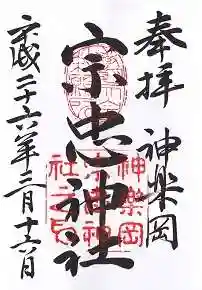 奉拝 神楽岡
宗忠神社
神楽岡
宗忠神社
平成二十六年三月十六日